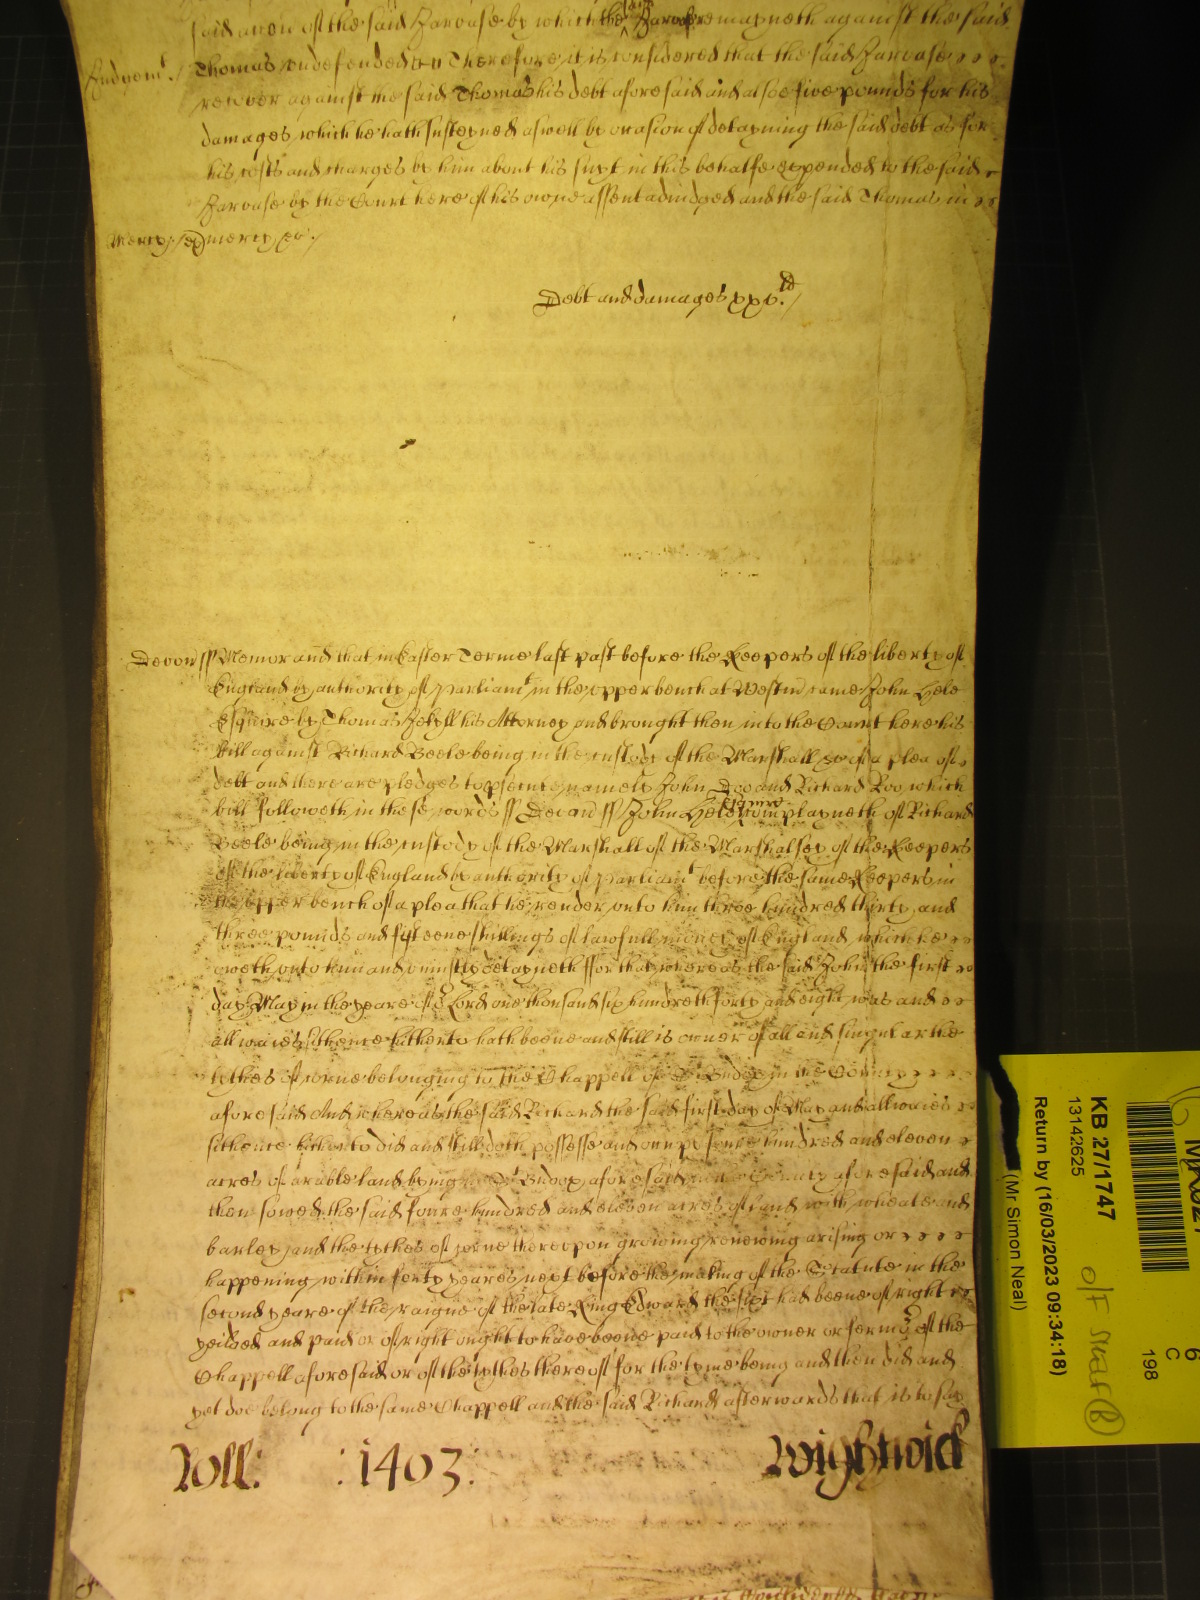 said accon of the said Jarvase by which the said Jarvase remayneth against the said
Judgem^t./ Thomas undefended &c Therefore it is considered that the said Jarvase
recover against the said Thomas his debt aforesaid and alsoe five pounds for his
damages which he hath susteyned aswell by occasion of detayning the said debt as for
his costs and charges by him about his suyt in this behalfe expended to the said
Jarvase by the Court here of his owne assent adiudged and the said Thomas in
Mercy
mercy &c./
Debt and damages xxx.^ld/
Devon ss Memorand that in Easter Terme last past before the Keepers of the liberty of
England by authority of Parliam^t in the upper bench at Westm came John Hele
Esquire by Thomas Jekyll his Attorney and brought then into the Court here his
bill against Richard Beele being in the custody of the Marshall &c of a plea of
debt and there are pledges to psecute namely John Doo and Richard Roo which
bill followeth in these words ss Devon ss John Hele Esquire complayneth of Richard
Beele being in the custody of the Marshall of the Marshalsey of the Keepers
of the liberty of England by authority of Parliam^t before the same Keepers in
the upper bench of a plea that he render unto him three hundred thirty and
three pounds and fyfteene shillings of lawfull money of England which he
oweth unto him and uniustly detayneth ffor that whereas the said John the first
day May in the yeare of o^r Lord one thousand six hundreth forty and eight was and
allwaies sithence hitherto hath beene and still is owner of all and singular the
tythes of corne belonging to the Chappell of in the County
aforesaid And whereas the said Richard the said first day of May and allwaies
sithence hitherto did and still doth possesse and occupy foure hundred and eleven
acres of arable land lying in aforesaid in the County aforesaid and
then sowed the said foure hundred and eleven acres of land with wheate and
barley and the tythes of corne thereupon growing renewing arising or
happening within forty yeares next before the making of the Statute in the
second yeare of the raigne of the late King Edward the sixt had beene of right
yeilded and paid or of right ought to have beene paid to the owner or fermo^r of the
Chappell aforesaid or of the tythes thereof for the tyme being and then did and
yet doe belong to the same Chappell and the said Richard afterwards that is to say
Roll: :1403: Wightwick
KB 27/1747
13142625
Return by (16/03/2023 09:34:18)
(Mr Simon Neal)
C
198
6